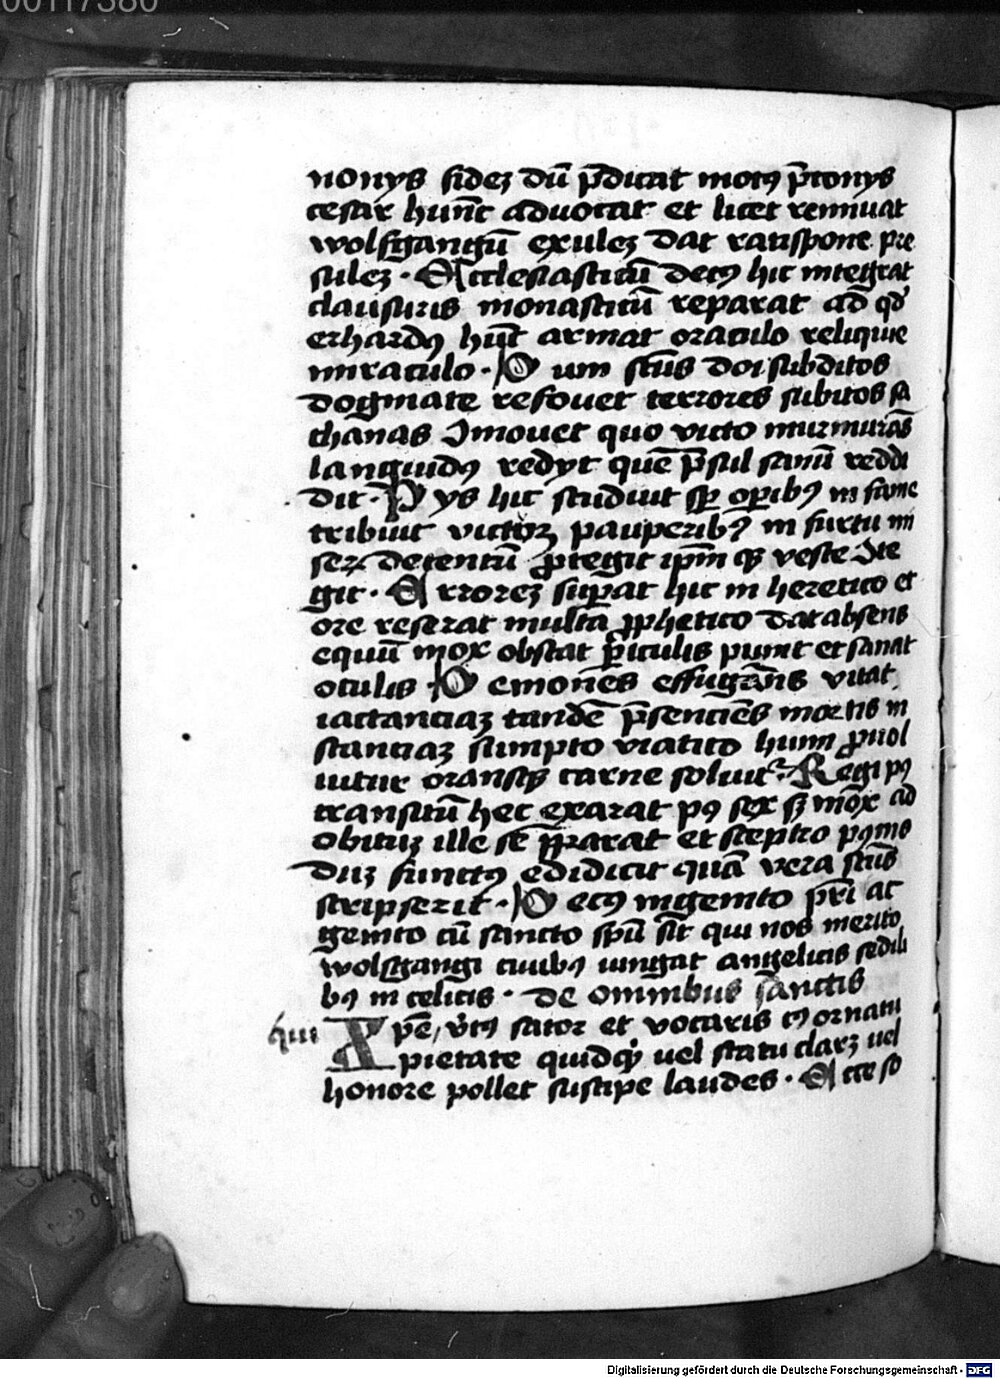 nonys fidez dū p̄dicat motꝯ p̄conys
cesar hūnc aduocat et licet rennuat
wolfgangū exulez dat ratispone pre
sulez · Ecclesiasticū decꝯ hic integrat
clausuris monasticū reparat ad qd̓
erhardꝯ hūc armat oraculo reliquie
miraculo · Dum scūs doi subditos
dogmate refouet terrores subitos sa
thanas ꝯmouet quo victo murmurās
languidꝯ redyt quē p̄sul sanū reddi
dit · Pys hic studuit sꝑ oꝑibꝯ in fame
tribuit victor pauperibꝯ in furtu mi
ser detentū ꝓtegit ip̄m qꝫ veste ꝯte
git · Errorez suꝑat hic in heretico et
ore reserat multa ꝓphetico dat absens
equū mox obstat ꝑiculis punit et sanat
oculis · Demones effugāns vitat
iactanciaz tandē p̄senciēs mortis in
stanciaz sumpto viatico humi ꝓuol
uitur oransqꝫ carne soluitᷣ · Regi pꝯ
transitū hec exarat pꝯ sex sꝫ mox ad
obituz ille sē p̄parat et sceptro pꝯmo
duz functꝯ edidicit quā vera scūs
scripserit · Decꝯ ingenito pr̄i ac
genito cū sancto sp̄u sit qui nos merito
wolfgangi ciuibꝯ iungat angelicis sedili
bꝯ in celicis · de omnibus sanctis
Xpē v̄tꝯ sator et vocaris cꝯ ornatu
pietate quidqꝫ uel statu clarꝫ uel
honore pollet suscipe laudes · Ecce so
Digitalisierung gefördert durch die Deutsche Forschungsgemeinschaft - DFG